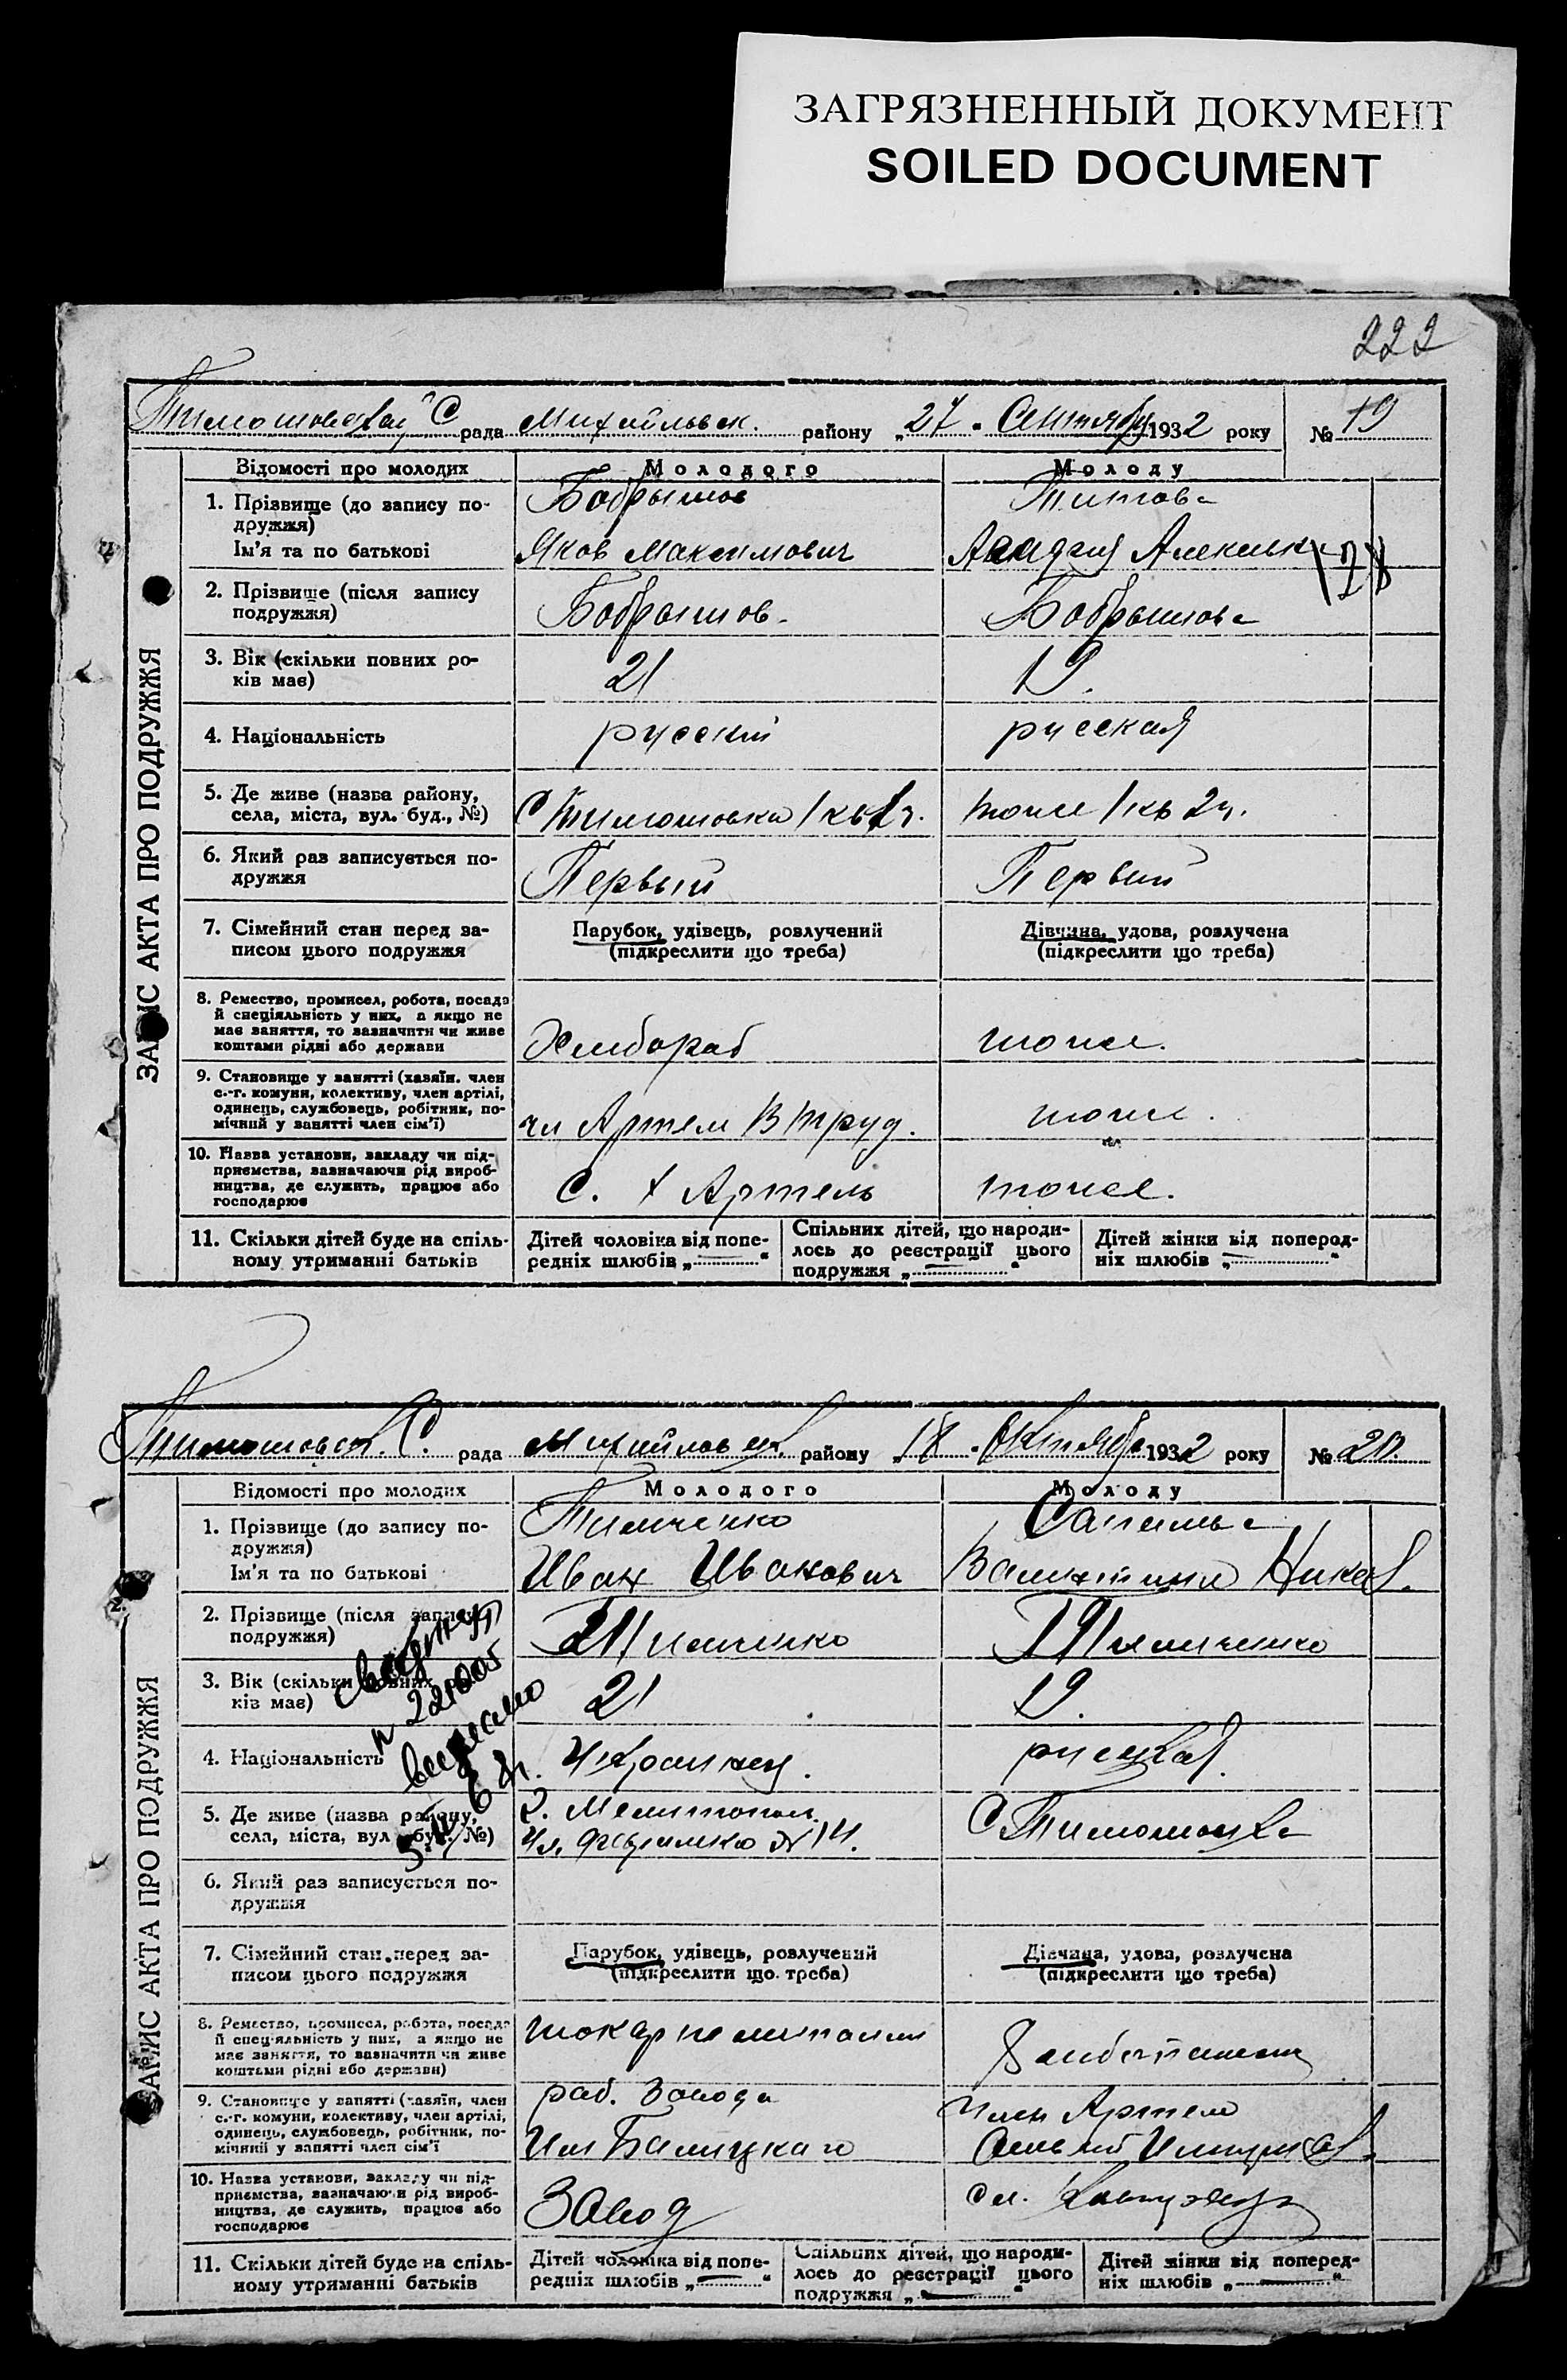 ЗАГРЯЗНЕННЫЙ ДОКУМЕНТ
SOILED DOCUMENT
222
С рада Михайльвск. району „27 " Сентября 1932 року № 19
ЗАПИС АКТА ПРО ПОДРУЖЖЯ
Відомості про молодих Молодого Молоду
1. Прізвище (до запису по-
дружжя)
Бобрышов Титова
Ім'я та по батькові Яков Максимович
2. Прізвище (після запису
подружжя)
Бобрышов. Бобрышова
3. Вік (скільки повних ро-
ків має)
21 19.
4. Національність русский русская
5. Де живе (назва району,
села, міста, вул. буд., №)
С Тимошовка тоже
6. Який раз записується по-
дружжя
Первый Первый
7. Сімейний стан перед за-
писом цього подружжя
Парубок, удівець, розлучений
(підкреслити що треба)
Дівчина, удова, розлучена
(підкреслити що треба)
8. Ремество, промисел, робота, посада
й спеціяльність у них, а якщо не
має заняття, то зазначити чи живе
коштами рідні або держави
Хлебороб тоже.
9. Становище у занятті (хазяїн, член
с.-г. комуни, колективу, член артілі,
одинець, службовець, робітник, по-
мічний у занятті член сім'ї)
чл Артели тоже.
10. Назва установи, закладу чи під-
приємства, зазначаючи рід вироб-
ництва, де служить, працює або
господарює
С. Х Артель тоже.
11. Скільки дітей буде на спіль-
ному утриманні батьків
Дітей чоловіка від попе-
редніх шлюбів „—"
Спільних дітей, що народи-
лось до реєстрації цього
подружжя „—"
Дітей жінки від поперед-
ніх шлюбів „—"
Тимошовск. С. рада району „18 " Октября 1932 року № 20.
ЗАПИС АКТА ПРО ПОДРУЖЖЯ
Відомості про молодих Молодого Молоду
1. Прізвище (до запису по-
дружжя)
Тимченко
Ім'я та по батькові Иван Иванович Валентина
2. Прізвище (після запису
подружжя)
Тимченко Тимченко
3. Вік (скільки повних ро-
ків має)
21 19.
4. Національність русская
5. Де живе (назва району,
села, міста, вул. буд., №)
Мелитополь
№ 14.
С. Тимошовка
6. Який раз записується по-
дружжя
7. Сімейний стан перед за-
писом цього подружжя
Парубок, удівець, розлучений
(підкреслити що треба)
Дівчина, удова, розлучена
(підкреслити що треба)
8. Ремество, промисел, робота, посада
й спеціяльність у них, а якщо не
має заняття, то зазначити чи живе
коштами рідні або держави)
токар
9. Становище у занятті (хазяїн, член
с.-г. комуни, колективу, член артілі,
одинець, службовець, робітник, по-
мічний у занятті член сім'ї
раб. Завода
Им Балицкаго
Член Артели
10. Назва установи, закладу чи під-
приємства, зазначаючи рід вироб-
ництва, де служить, працює або
господарює
Завод
11. Скільки дітей буде на спіль-
ному утриманні батьків
Дітей чоловіка від попе-
редніх шлюбів „—"
Спільних дітей, що народи-
лось до реєстрації цього
подружжя „—"
Дітей жінки від поперед-
ніх шлюбів „—"